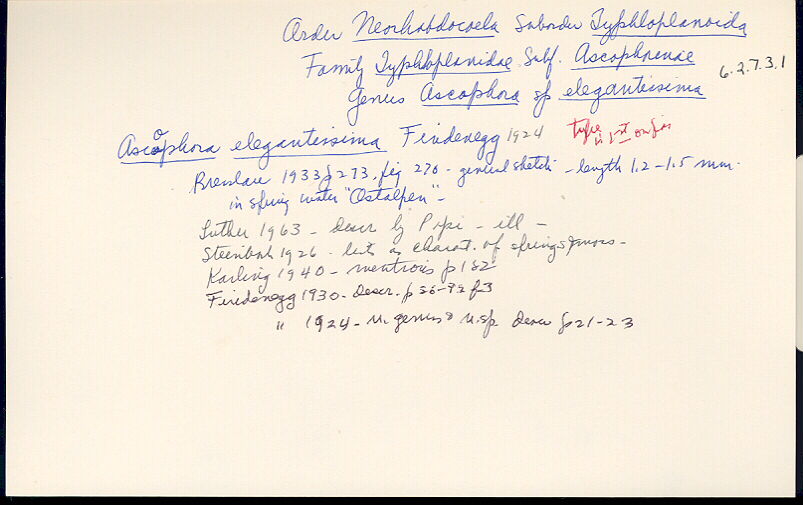 Order Neorhabdocoela Suborder Typhloplanoida
Family Typhloplanidae Subf. Ascophorinae
6.2.7.3.1
Genus Ascophora sp elegantissima
Ascophora elegantissima Findenegg 1924 type
Bresslau 1933 p 273, fig 270 - general sketch - length 1.2 - 1.5 mm.
in spring water "Ostalpen" -
Luther 1963 - Descr by - ill -
Steinböck 1926 - lists as charact. of springs & moss -
Karling 1940 - mentions p 152
Findenegg 1930 - Descr. p f3
" 1924 - n. genus & n. sp. Descr p 21-23